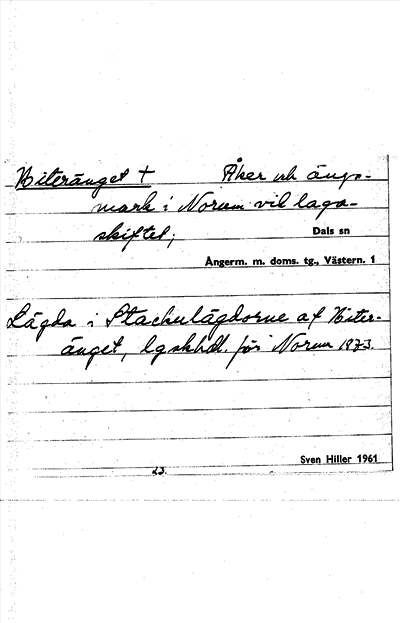 Biteränget + Åker och ängs-
mark i Norum vid laga-
skiftet;
Dals sn
Ångerm. m. doms. tg., Västern. 1
Lägda i Stackulägdorne af Biter-
änget, lgskhdl. för Norum 1873.
Sven Hiller 1961
23.